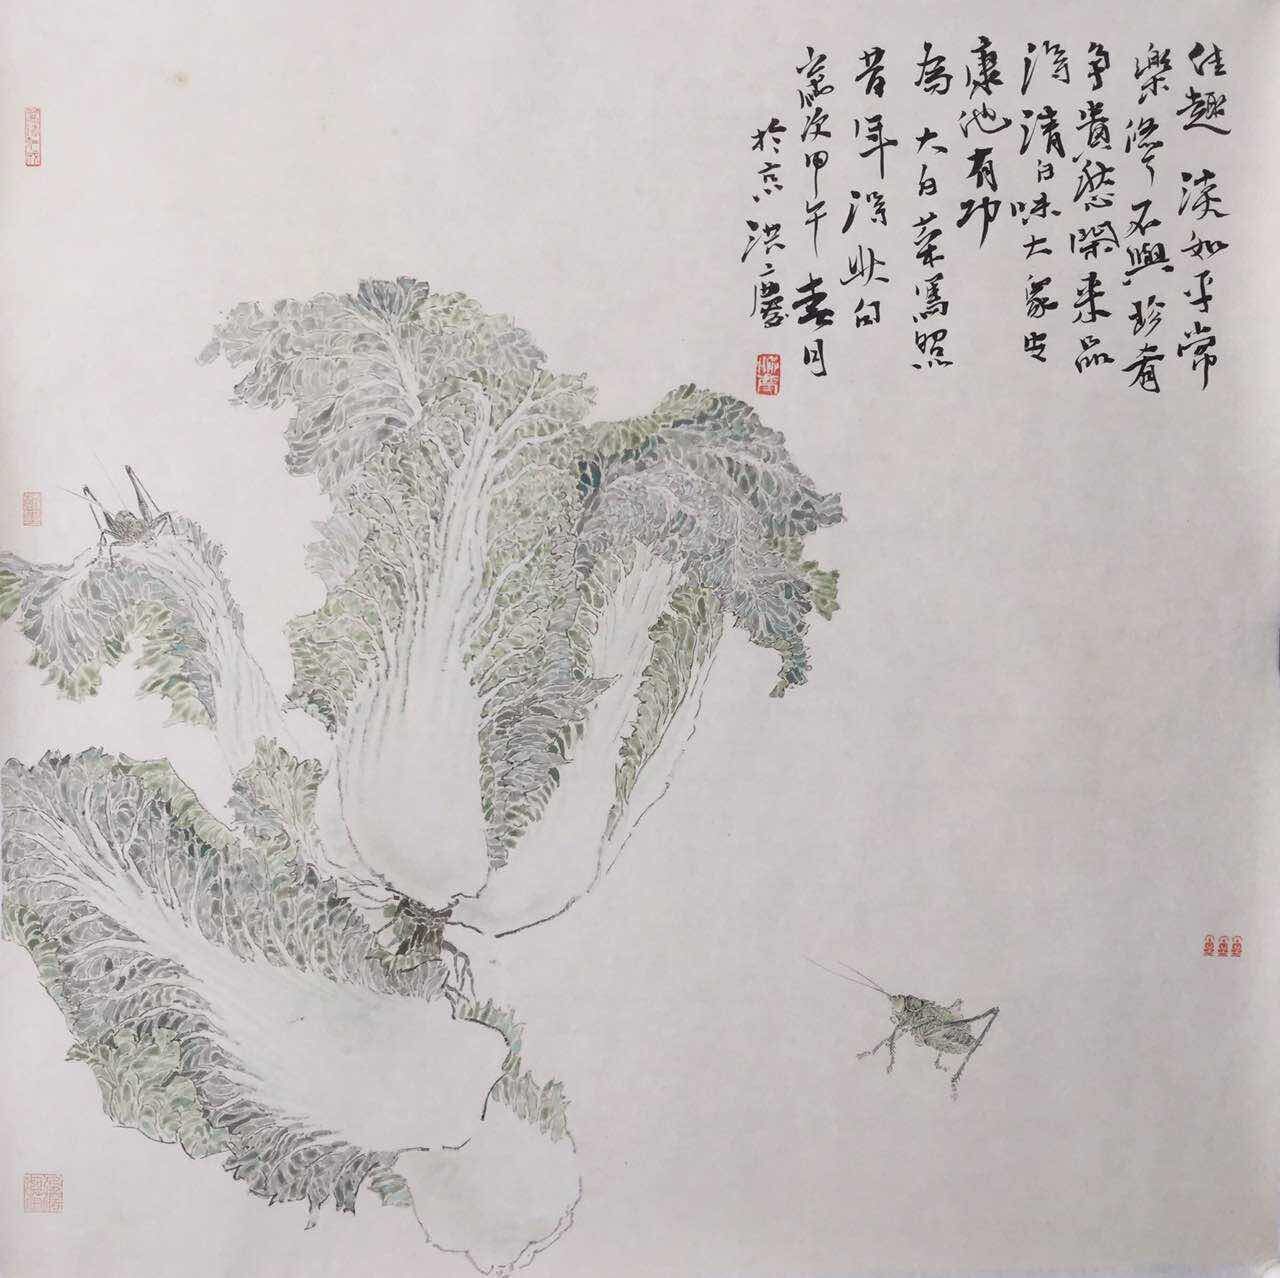 佳趣 淡如平常
樂悠々不與珍肴
争貴閑来品
得清白味大家安
康她有功
為大白菜寫照
昔年得此句
歲次甲午春月
於京 洪慶